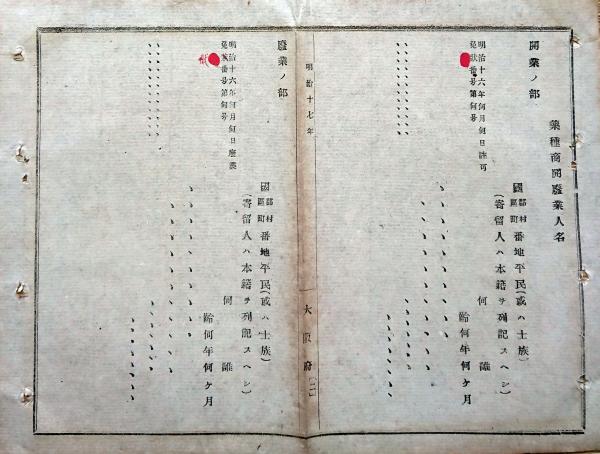 藥種商開廢業人名
開業ノ部
明治十六年何月何日許可
免狀番号第何号
國 郡區 村町 番地平民(或ハ士族)
(寄留人ハ本籍ヲ列記スヘシ)
何誰
齡何年何ケ月
明治十七年
大阪府
(二)
廢業ノ部
明治十六年何月何日廢業
免狀番号第何号
國 郡區 村町 番地平民(或ハ士族)
(寄留人ハ本籍ヲ列記スヘシ)
何誰
齡何年何ケ月